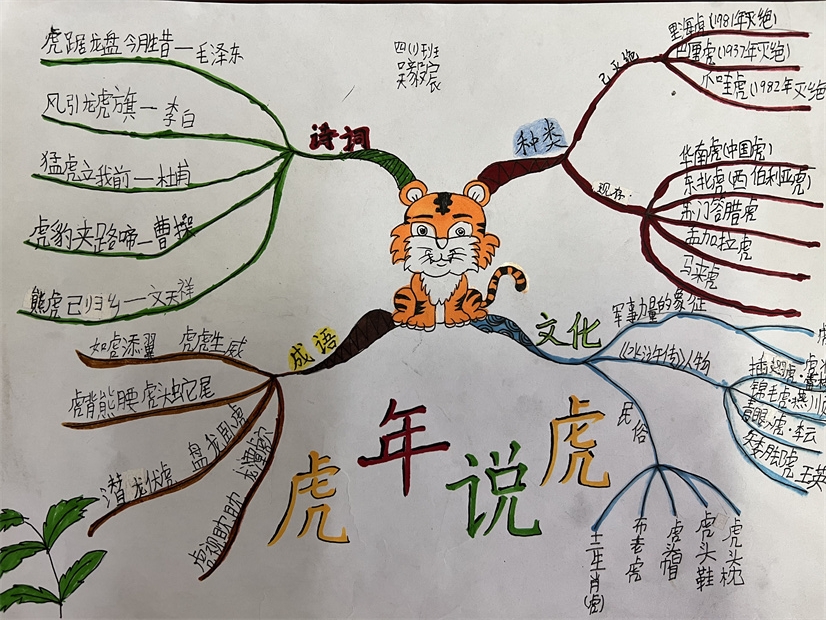 虎踞龙盘今胜昔一毛泽东
风引龙虎旗一李白
猛虎立我前一杜甫
虎豹夹路啼一曹操
熊虎已归乡一文天祥
诗词
四(1)班
种类
已灭绝
里海虎(1981年灭绝)
巴厘虎(1937年灭绝)
爪哇虎(1982年灭绝)
现存
华南虎(中国虎)
东北虎(西伯利亚虎)
苏门答腊虎
孟加拉虎
马来虎
成语
如虎添翼 虎虎生威
虎背熊腰 虎头蛇尾
潜龙伏虎 盘龙卧虎
虎视眈眈 龙潭虎穴
文化
军事力量的象征
《水浒传》人物
插翅虎·雷横
锦毛虎·燕顺
青眼虎·李云
矮脚虎·王英
民俗
十二生肖(虎)
布老虎
虎头帽
虎头鞋
虎头枕
虎年说虎